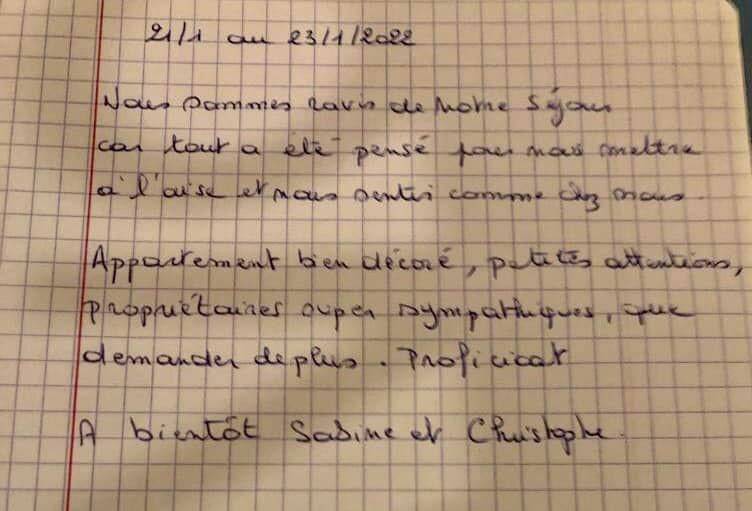 21/1 au 23/1/2022
Nous sommes ravis de notre séjour
car tout a été pensé pour nous mettre
à l'aise et nous sentir comme chez nous.
Appartement bien décoré, petites attentions,
propriétaires super sympathiques, que
demander de plus. Proficiat
A bientôt Sabine et Christophe.